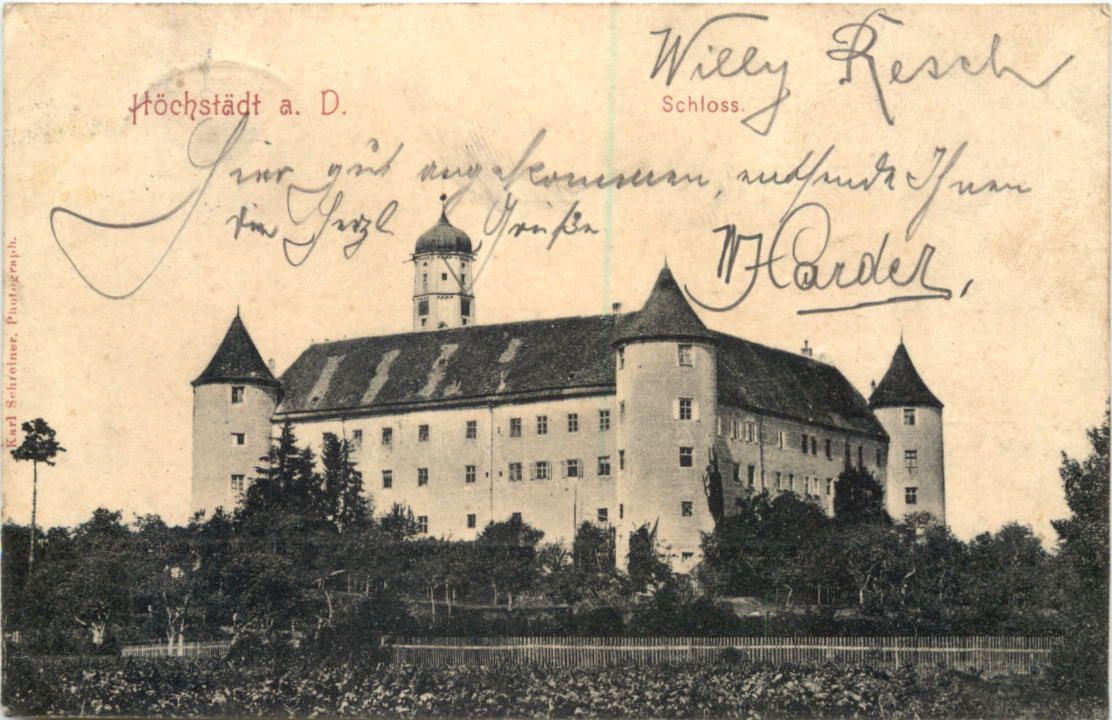 Willy Resch
Höchstädt a. D.
Schloss.
Hier gut angekommen, endsende Ihnen
die Herzl Grüße
Harder,
Karl Schreiner, Photograph.